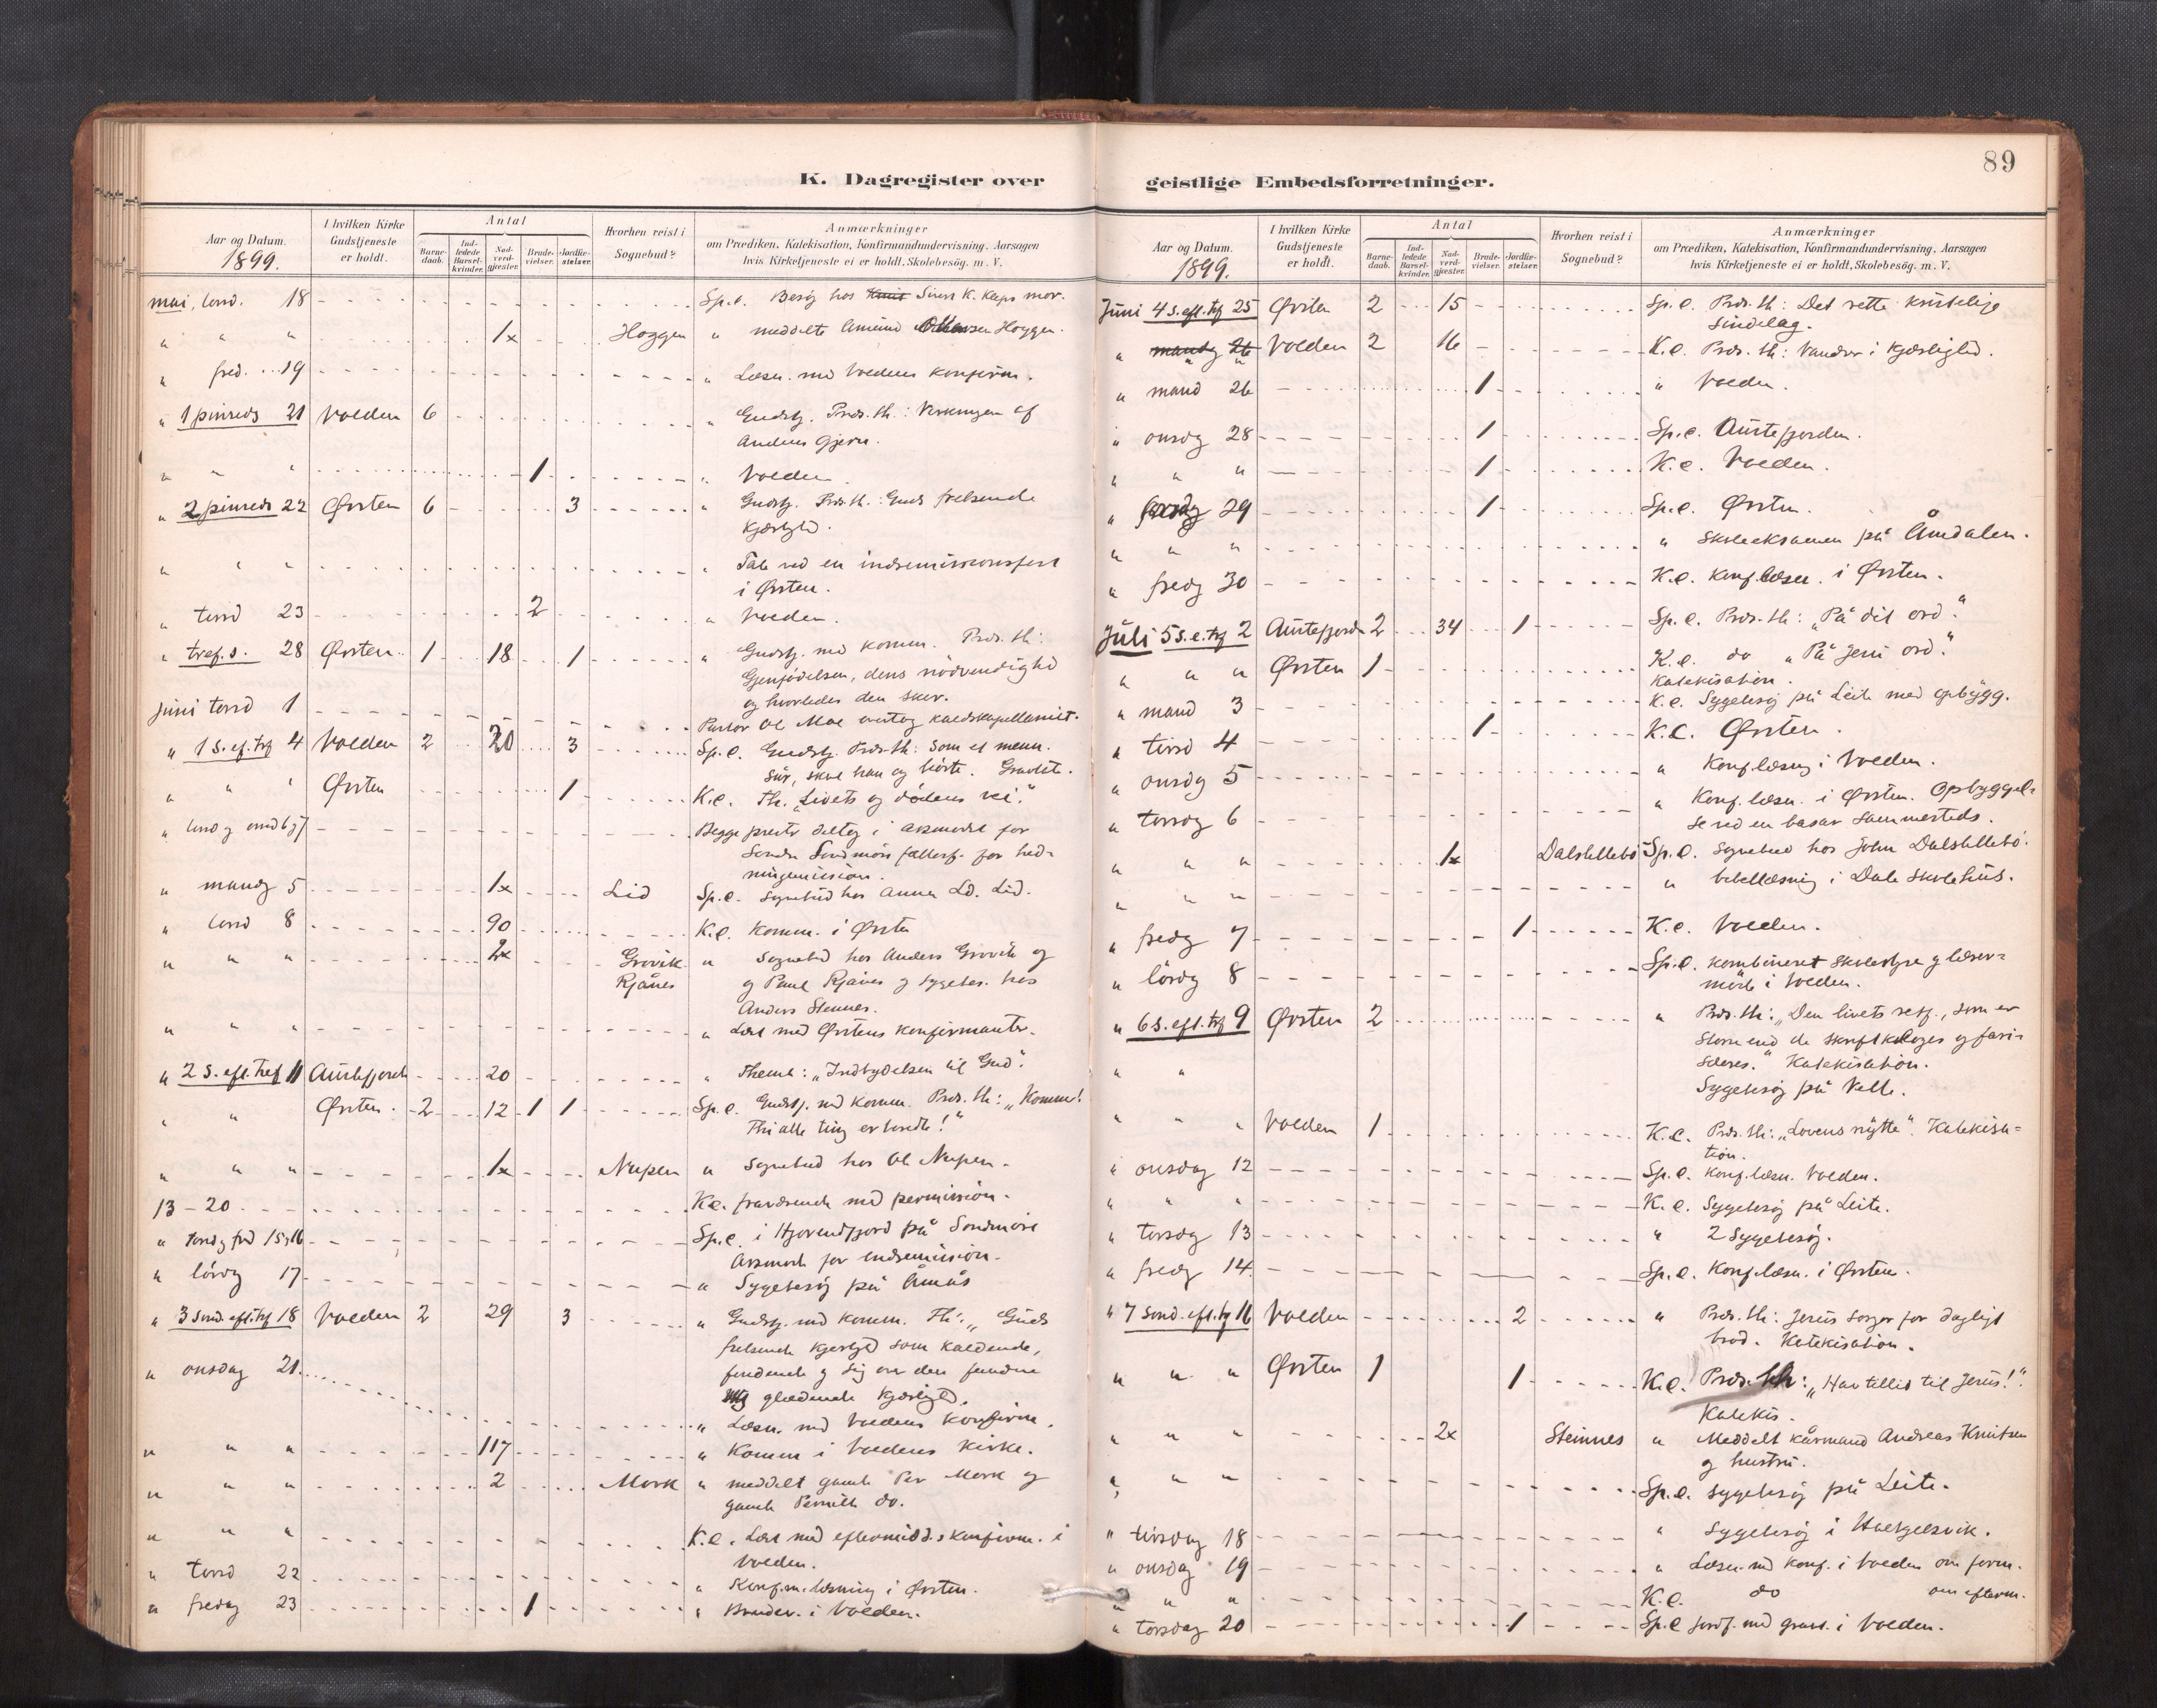 89
K. Dagregister over
Aar og Datum. I hvilken Kirke Gudstjeneste er holdt. Antal Barne-daab. Ind-ledede Barsel-kvinder. Nad-verd-gjester. Brude-vielser. Jordfæ-stelser. Hvorhen reist i Sognebud? Anmærkninger
om Prædiken, Katekisation, Konfirmandundervisning. Aarsagen
hvis Kirketjeneste ei er holdt. Skolebesög. m. V.
1899.
mai, torsd. 18 Sp.e. Besøg hos Knut K. mor.
" " " 1x Hoggen " meddelte Amund Hoggen.
" fred. 19 " Læsn. med Voldens konfirm.
" 1 pinseds 21 Volden 6 " Gudstj. Præs. th.: Virkningen af
Andens gjern.
" " " 1 " Volden.
" 2 pinseds 22 Ørsten 6 3 " Gudstj. Præs. th.: Guds frelsende
kjærlighd.
" " " " Tale ved en indremissionsfest
i Ørsten.
" tirsd 23 2 " Volden.
" tref. s. 28 Ørsten 1 18 1 " Gudstj. med komm. Præs. th:
Gjenfødelsen, dens nødvendighd
og hvorledes den sker.
juni torsd 1 Pastor Ol Moe overtog kaldskapellaniet.
" 1 S. ef. trf 4 Volden 2 20 3 Sp.e. Gudstj. Præs. th: Som et menn.
sår, skal han og høste.
" " " Ørsten 1 K.e. Th. "Livets og dødens vei."
" Begge prester deltog i årsmødet for
Søndre Søndmørs fællesf. for hed-
ningemission.
" mandg 5 1x Lid Sp.e. Sognebud hos Anna Lid.
" torsd 8 90 K.e. Komm. i Ørsten
" " " 2x Grovik " Sognebud hos Anders Grovik og
Rjånes og Paul Rjånes og sygebes. hos
Anders Steinnes.
" " " " Læst med Ørstens konfirmanter.
" 2 S. eft. tref 11 Austefjord 20 " Thema: "Indbydelsen til Gud".
" " Ørsten. 2 12 1 1 Sp.e. Gudstj. med komm. Præs. th: "Komm!
Thi alle ting er beredt!"
" " " 1x Nupen " Sognebud hos Ol Nupen.
13 - 20 K.e. fraværende med permission.
" Torsd g fred 15 g 16 Sp.e. i Hjørendfjord på Søndmøre
Årsmøde for indremission.
" lördg 17 " Sygebesøg på Åmås
" 3 Sönd. eft. trf 18 Volden 2 29 3 " Gudstj. med komm. Th: "Guds
frelsende kjærlighd som kaldende,
findende og sig over den fundne
glædende kjærlighd.
" onsdag 21 " Læsn. med Voldens konfirm.
" " " 117 " Komm i Voldens kirke.
" " " 2 Mork " meddelt gamle Per Mork og
gamle Pernille do.
" " " K.e. Læst med eftermidd.s konfirm. i
Volden.
" torsd 22 " Konf.m. læsning i Ørsten.
" fredag 23 1 " Brudev. i Volden.
geistlige Embedsforretninger.
Aar og Datum. I hvilken Kirke Gudstjeneste er holdt. Antal Barne-daab. Ind-ledede Barsel-kvinder. Nad-verd-gjester. Brude-vielser. Jordfæ-stelser. Hvorhen reist i Sognebud? Anmærkninger
om Prædiken, Katekisation, Konfirmandundervisning. Aarsagen
hvis Kirketjeneste ei er holdt, Skolebesög. m. V.
1899.
Juni 4 S. eft. trf 25 Ørsten 2 15 Sp.e. Præs. th: Det rette kristelige
sindelag.
" mandg 26 Volden 2 16 K.e. Præs. th: Vandrer i kjærlighed.
" mand 26 1 " Volden.
" onsdg 28 1 Sp.e. Austefjorden.
" " " 1 K.e. Volden.
" 29 1 Sp.e. Ørsten.
" " " " Skoleeksamen på Åmdalen.
" fredg 30 K.e. konf.læsn. i Ørsten.
Juli 5 S. e. trf 2 Austefjord 2 34 1 Sp.e. Præs. th: "På dit ord".
" " " Ørsten 1 K.e. do "På Jesu ord".
Katekisation.
" mand 3 K.e. Sygebesøg på Leite med opbygg.
" tirsd 4 1 K.e. Ørsten.
" onsdg 5 " Konf.læsng i Volden.
" torsdg 6 " Konf.læsn. i Ørsten. Opbyggel-
se ved en basar sammesteds.
" " " 1x Dalslillebø Sp.e. Sognebud hos John Dalslillebø.
" " " " bibellæsning i Dale skolehus.
" fredg 7 1 K.e. Volden.
" lördg 8 Sp.e. Kombineret skolestyre g lærer-
möde i Volden.
" 6 S. eft. trf 9 Ørsten 2 " Præs. th: "Den livets retf., som er
större end de skriftkloges og fari-
sæeres." Katekisation.
" " Sygebesøg på Velle.
" " " Volden 1 K.e. Præs. th: "Lovens nytte". Katekisa-
tion.
" onsdag 12 Sp.e. Konf.læsn. Volden.
" " " K.e. Sygebesøg på Leite.
" torsdg 13 " 2 Sygebesøg.
" fredg 14 Sp.e. Konf.læsn. i Ørsten.
" 7 Sönd. eft. tf 16 Volden 2 " Præs. th: Jesus sørger for dagligt
brød. Katekisation.
" " " Ørsten 1 1 K.e. Præs. th: "Hav tillid til Jesus!".
Katekis.
" " " 2x Steinnes " Meddelt kårmand Andreas Knutsen
og hustru.
" " " Sp.e. sygebesøg på Leite.
" tirsdag 18 " Sygebesøg i
" onsdag 19 " Læsn. med konf. i Volden om form.
" " " K.e. do om efterm.
" torsdag 20 1 Sp.e jordf. med i Volden.